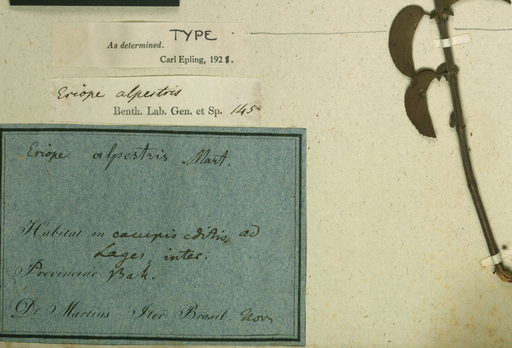 TYPE
As determined.
Carl Epling, 1928.
Eriope alpestris
Benth. Lab. Gen. et Sp. 145
Eriope alpestris Mart.
Habitat in campis editis ad
Lages inter.
Provinciae Bah.
Dr Martius Iter Brasil. Nov.